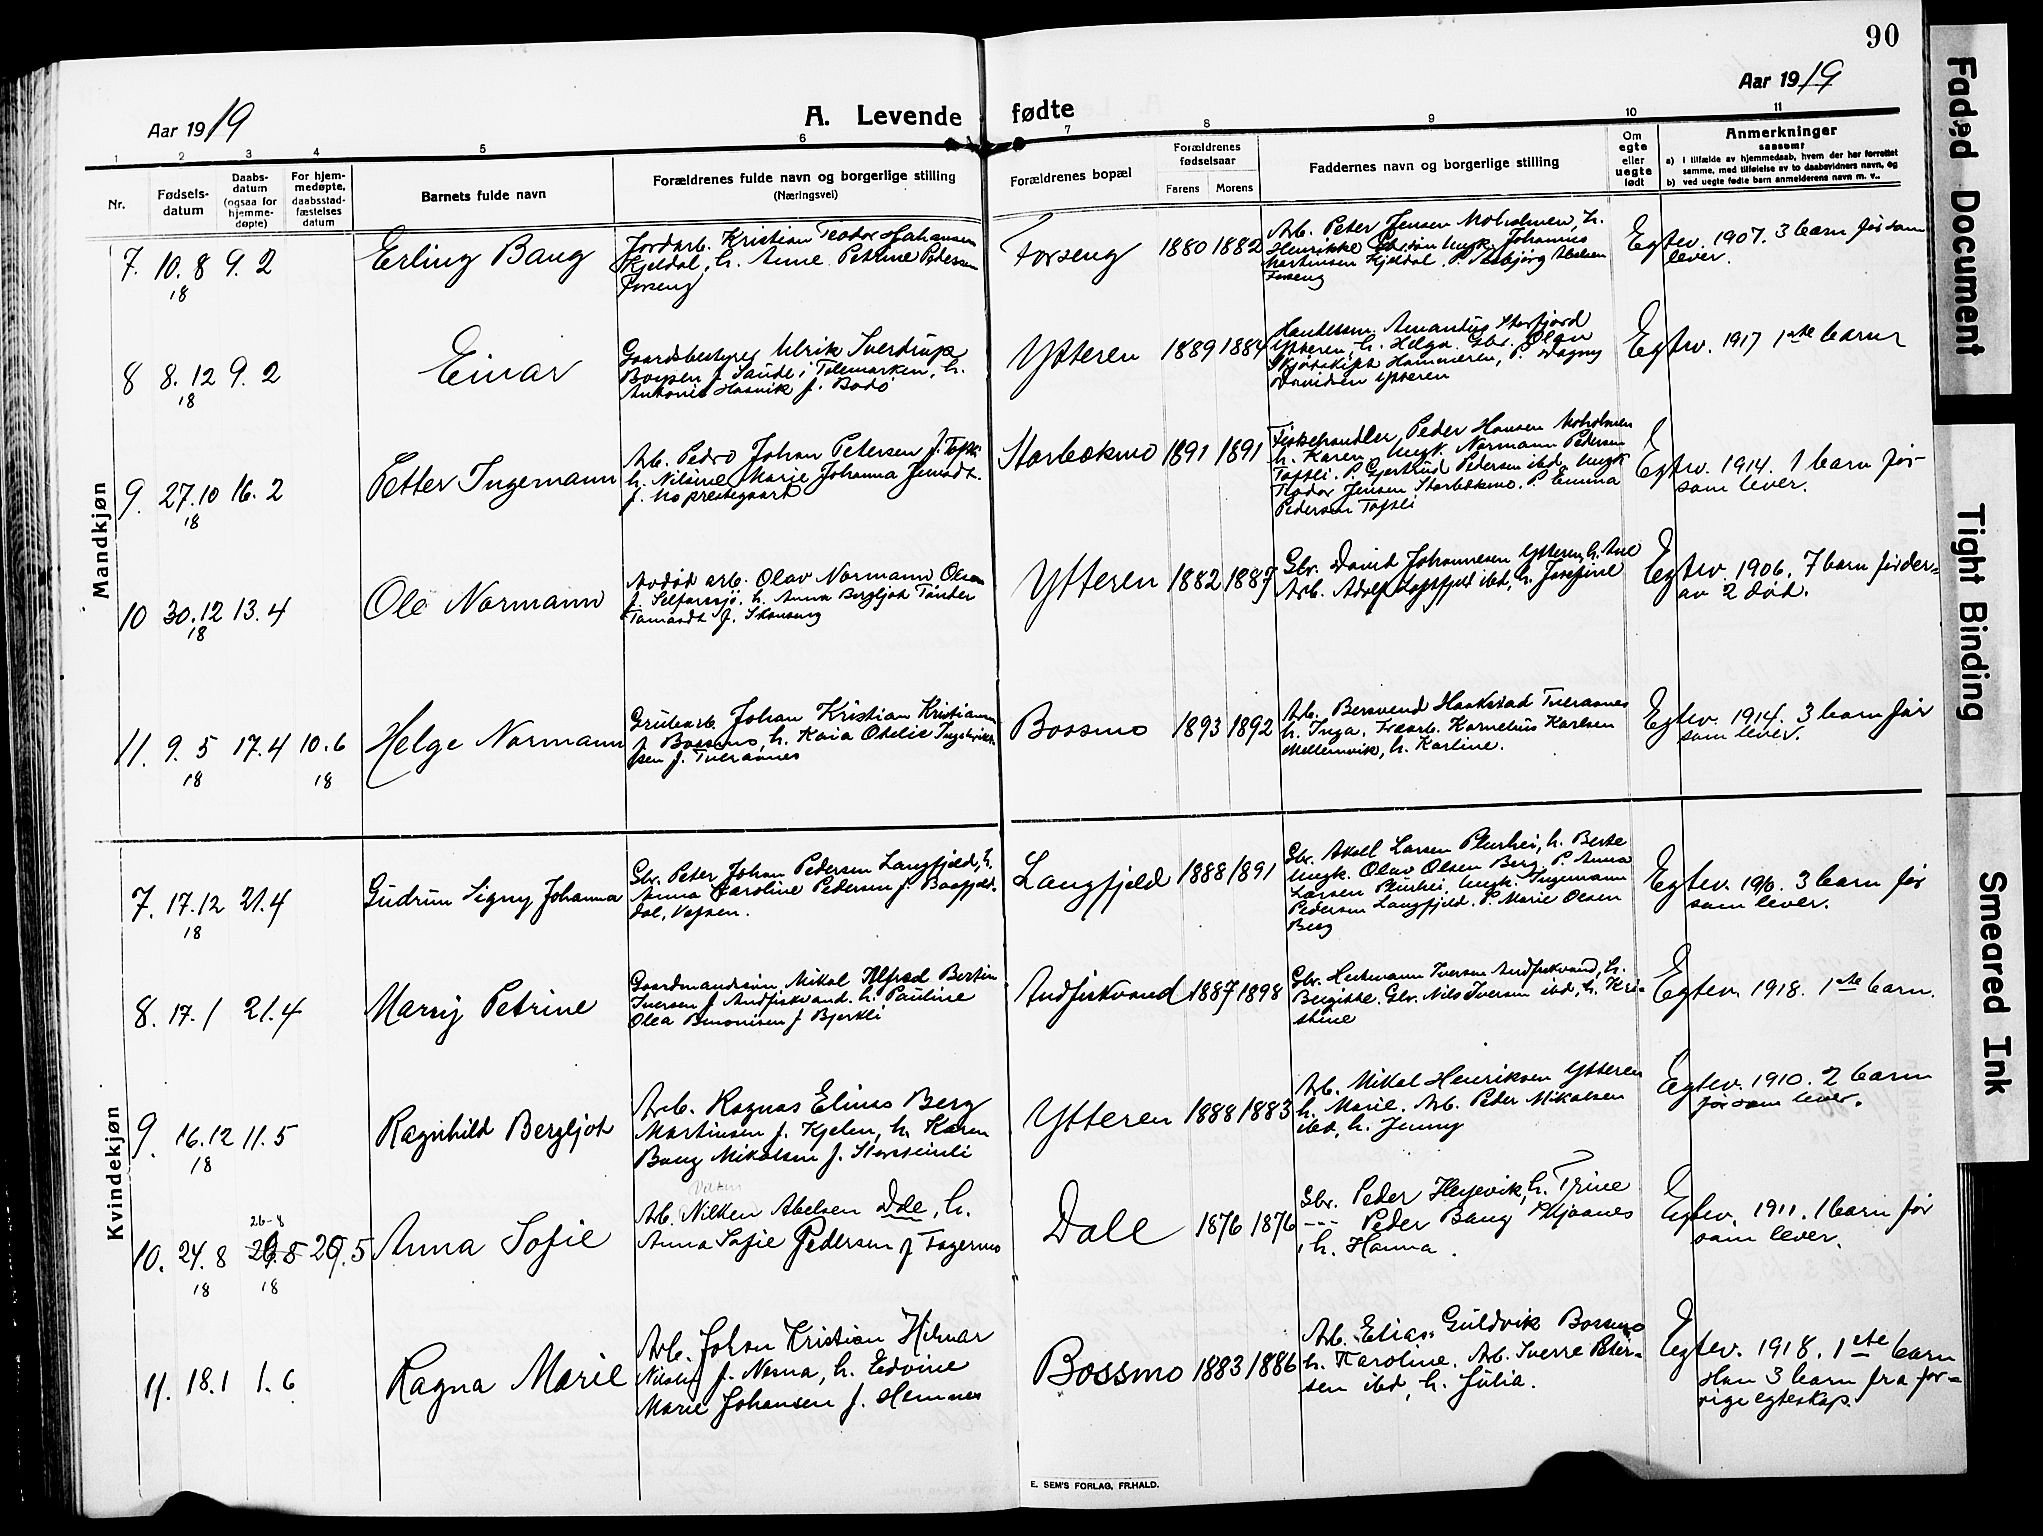 90
Aar 1919
A. Levende fødte
Aar 1919
1 2 3 4 5 6 7 8 9 10 11
Nr.
Fødsels-
datum
Daabs-
datum
(ogsaa for
hjemme-
døpte)
For hjem-
medøpte,
daabsstad-
fæstelses
datum
Barnets fulde navn
Forældrenes fulde navn og borgerlige stilling
(Næringsvei)
Forældrenes bopæl
Forældrenes
fødselsaar
Farens Morens
Faddernes navn og borgerlige stilling
Om
egte
eller
uegte
født
Anmerkninger
saasom:
a) I tilfælde av hjemmedaab, hvem der har forrettet
samme, med tilføielse av to daabsvidners navn, og
b) ved uegte fødte barn anmelderens navn m. v..
Mandkjøn
7. 10.8 9.2
18
Erling Bang
Jordarb. Kristian Teodor Johansen
Kjeldal, h. Anne Petrine Pedersen
Forseng
Forseng 1880 1882
Arb. Peter Jensen Moholmen, h.
Henrikke. Ungk. Johannes
Martinsen Kjeldal. P. Asbjørg Abelsen
Forseng
Egtev. 1907. 3 barn før som
lever.
8 8.12 9.2
18
Einar
Gaardsbestyrer Ulrik Sverdrup
Boysen f. Saude i Telemarken, h.
Antonie Haavik f. Bodø
Ytteren 1889 1884
Handelsm. Amandus Storfjord
Ytteren, h. Helga. Gbr. Olav
Hammeren, P. Dagny
Davidsen Ytteren
Egtev. 1917 1ste barn
9. 27.10 16.2
18
Petter Ingemann
Arb. Pedro Johan Petersen f. Tofte
h. Nilsine Marie Johanna
f. Mo prestegaard
Storbækmo 1891 1891
Fiskehandler Peder Hansen Moholmen
h. Karen, Ungk. Normann Pedersen
Toftli. P. Gjertrud Pedersen ibd. Ungk
Teodor Jensen Storbækmo. P. Emma
Pedersen Toftli
Egtev. 1914. 1 barn før
som lever.
10 30.12 13.4
18
Ole Normann
Avdød arb. Olav Normann Olsen
f. Selforssjø. h. Anna Bergljot Tander
f. Stenseng
Ytteren 1882 1887
Gbr. David Johannesen Ytteren, h. Ane
Arb. Adolf ibd, h. Josefine
Egtev. 1906. 7 barn før der-
av 2 død.
11. 9.5 17.4 10.6
18 18
Helge Normann
Grubearb. Johan Kristian Kristiansen
f. Bossmo, h. Kaia Otelie Ingebrikt-
sen f. Tveraanes
Bossmo 1893 1892
Arb. Bersvend Haakstad Tveraanes
h. Inga. Arb. Kornelius Karlsen
Mellemvik, h. Karline.
Egtev. 1914. 3 barn før
som lever.
Kvindekjøn
7. 17.12 21.4
18
Gudrun Signy Johanna
Gbr. Peter Johan Pedersen Langfjeld, h.
Anna Karoline Pedersen f. Baafjeld-
dal, Vefsen.
Langfjeld 1888 1891
Gbr. Aksel Larsen Plurhei, h. Berte
Ungk. Olav Olsen Berg P. Anna
Larsen Plurhei, Ungk. Ingemann
Pedersen Langfjeld. P. Marie Olsen
Berg
Egtev. 1910. 3 barn før
som lever.
8. 17.1 21.4
Marsy Petrine
Gaardmandssøn Mikal Alfred Bertin
Iversen f. Andfiskvand. h. Pauline
Olea Benonisen f. Bjerkli
Andfiskvand 1887 1898
Gbr. Hartmann Iversen Andfiskvand, h.
Bergitte. Gbr. Nils Iversen ibd, h. Kri-
stine
Egtev. 1918. 1ste barn.
9. 16.12 11.5
18
Ragnhild Bergljot
Arb. Ragnas Elinas Berg
Martinsen f. Kjelen, h. Karen
Bang Mikalsen f. Storsteinli
Ytteren 1888 1883
Arb. Mikal Henriksen Ytteren
h. Marie. Arb. Peder Mikalsen
ibd, h. Jenny
Egtev. 1910. 2 barn
før som lever.
26-8
10. 24.8 26.8 29.5
18 18
Anna Sofie
Arb. Nilken Abelsen Dale, h.
Anna Sofie Pedersen f. Fagermo
Dale 1876 1876
Gbr. Peder Heyevik, h. Trine
--- Peder Bang Skjaanes
h. Hanna.
Egtev. 1911. 1 barn før
som lever.
11. 18.1 1.6
Ragna Marie
Arb. Johan Kristian Hilmar
Nilsen f. Nesna, h. Edvine
Marie Johansen f. Hemnes
Bossmo 1883 1886
Arb. Elias Guldvik Bossmo
h. Karoline. Arb. Sverre Peter-
sen ibd, h. Julia.
Egtev. 1918. 1ste barn
Han 3 barn fra for-
rige egteskap.
E. SEM'S FORLAG, FR.HALD.
Faded Document
Tight Binding
Smeared Ink